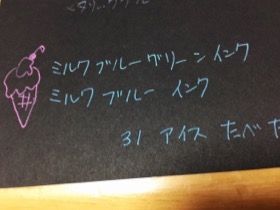 ミルクブルーグリーンインク
ミルクブルー インク
31 アイス たべた